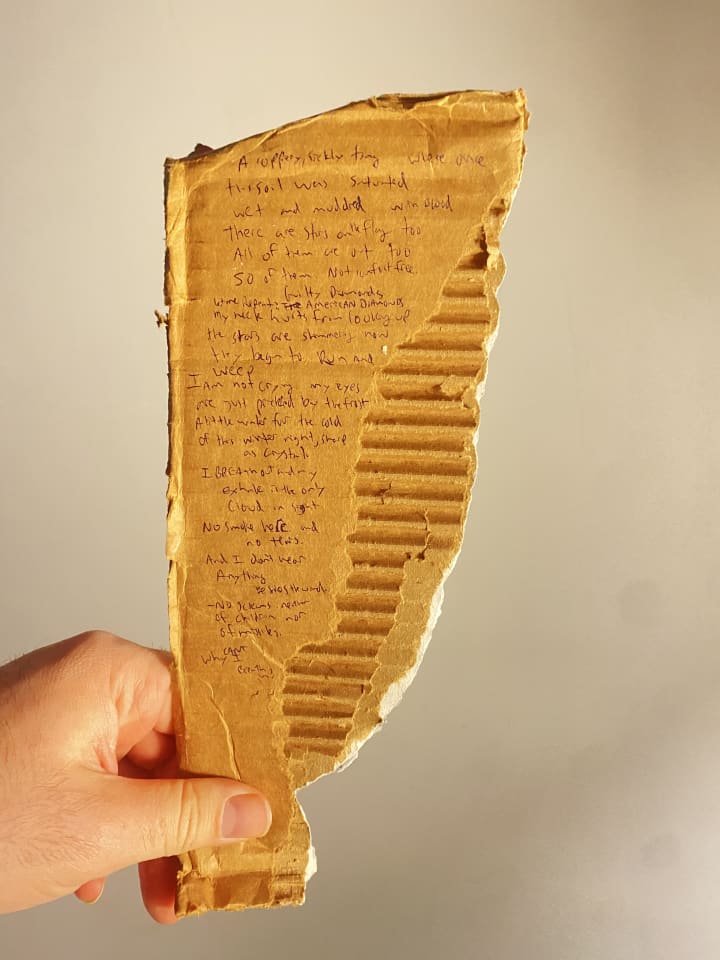 A coppery, sickly tang where once
this soil was saturated
wet and muddied with blood
There are stars on the flag too
All of them are out too
50 of them Not
guilty Diamonds
Repeat: AMERICAN DIAMONDS
my neck hurts from looking up
the stars are shimmering now
they begin to Run and
weep
I Am not crying my eyes
are just pricked by the frost
A little water for the cold
of this winter night, sharp
as crystal.
I BREAth out and my
exhale is the only
Cloud in sight
No smoke here and
no
And I don't hear
Anything
besides the wind.
- No screams neither
of children nor
of missiles.
CAN'T
Why I